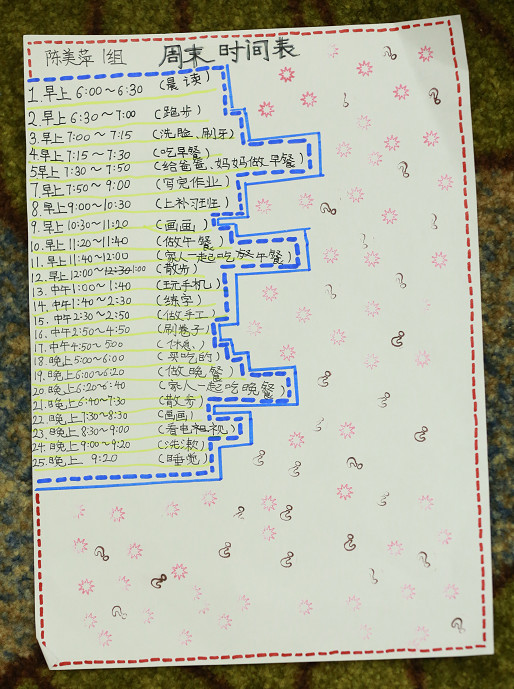 陈美萍 1组 周末时间表
1.早上 6:00～6:30 (晨读)
2.早上 6:30～7:00 (跑步)
3.早上 7:00～7:15 (洗脸、刷牙)
4.早上 7:15～7:30 (吃早餐)
5早上 7:30～7:50 (给爸爸、妈妈做早餐)
7.早上 7:50～9:00 (写完作业)
8.早上9:00～10:30 (上补习班)
9.早上10:30～11:20 (画画)
10.早上11:20～11:40 (做午餐)
11.早上11:40～12:00 (家人一起吃午餐)
12.早上12:00～1:00 (散步)
13.中午1:00～1:40 (玩手机)
14.中午1:40～2:30 (练字)
15.中午2:30～2:50 (做手工)
16.中午2:50～4:50 (刷卷子)
17.中午4:50～5:00 (休息)
18.晚上5:00～6:00 (买吃的)
19.晚上6:00～6:20 (做晚餐)
20.晚上6:20～6:40 (家人一起吃晚餐)
21.晚上6:40～7:30 (散步)
22.晚上7:30～8:30 (画画)
23.晚上8:30～9:00 (看电视)
24.晚上9:00～9:20 (洗漱)
25.晚上 9:20 (睡觉)